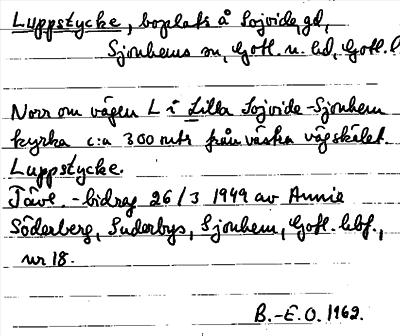 Luppstycke, boplats å Sojvide, gd,
Sjonhems sn, Gotl. n. hd, Gotl. l
Norr om vägen L i Lilla Sojvide-Sjonhem
kyrka c:a 300 mtr från västra vägskälet.
Luppstycke.
Tävl.-bidrag 26/3 1949 av Annie
Söderberg, Suderbys, Sjonhem, Gotl. hbf.,
nr 18.
B.-E.O. 1962.